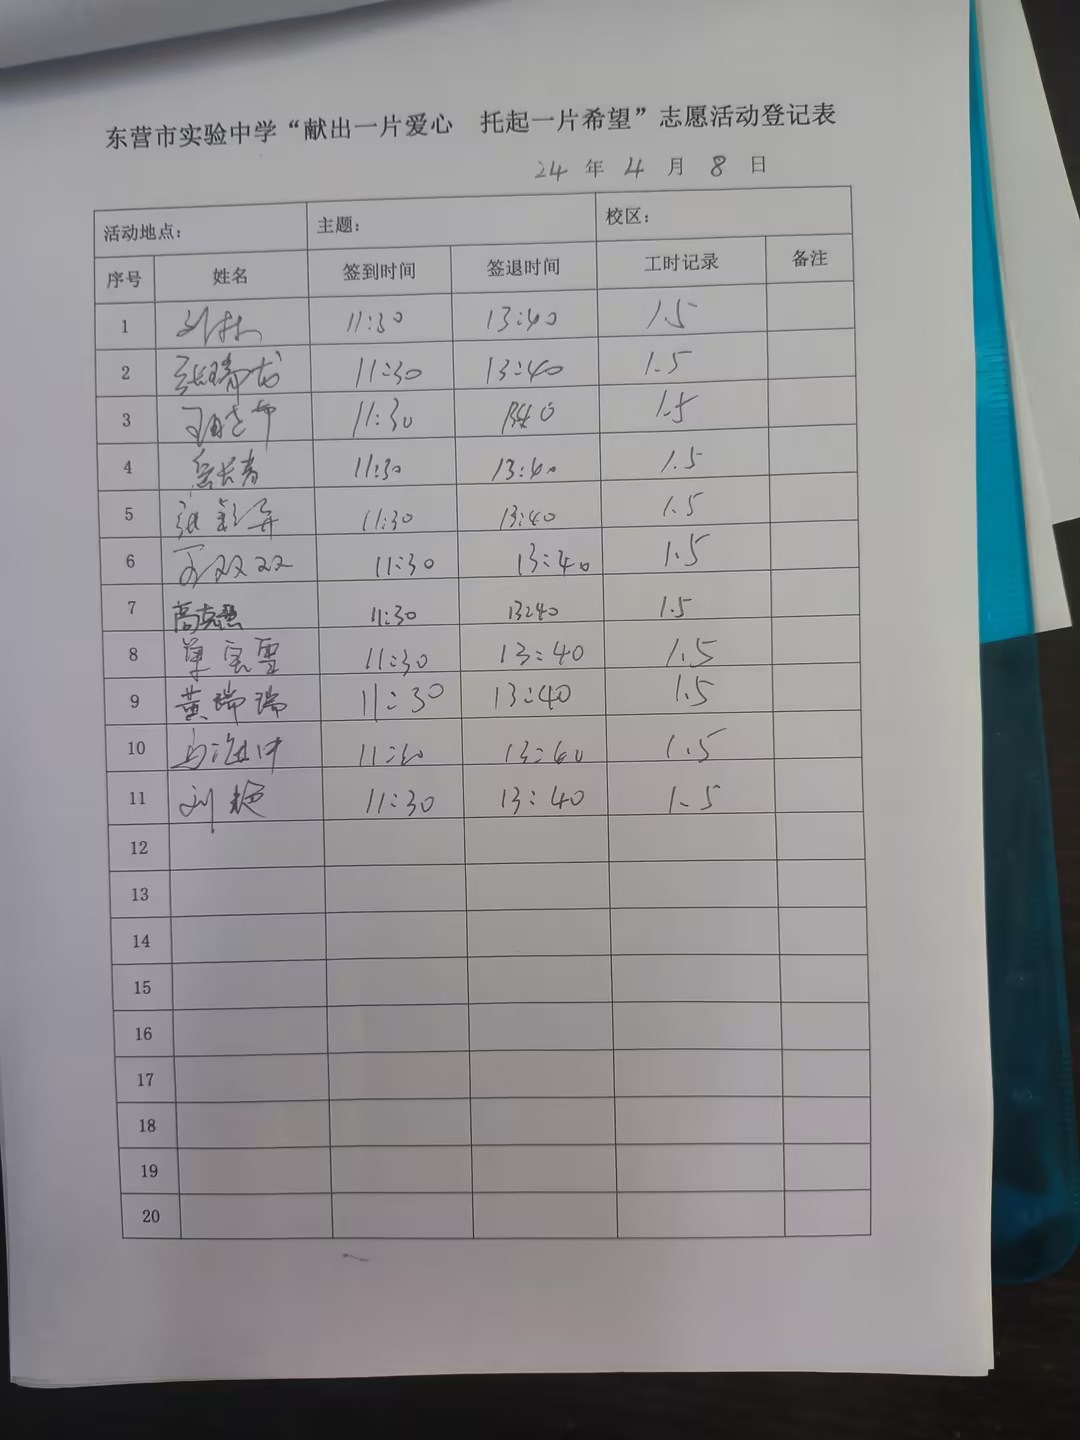 东营市实验中学“献出一片爱心 托起一片希望”志愿活动登记表
24 年 4 月 8 日
活动地点： 主题： 校区：
序号 姓名 签到时间 签退时间 工时记录 备注
1 11:30 13:40 1.5
2 张瑞龙 11:30 13:40 1.5
3 11:30 1340 1.5
4 岳长青 11:30 13:40 1.5
5 11:30 13:40 1.5
6 双双 11:30 13:40 1.5
7 高克慧 11:30 13:40 1.5
8 单宝雪 11:30 13:40 1.5
9 黄瑞瑞 11:30 13:40 1.5
10 11:30 13:40 1.5
11 刘艳 11:30 13:40 1.5
12
13
14
15
16
17
18
19
20